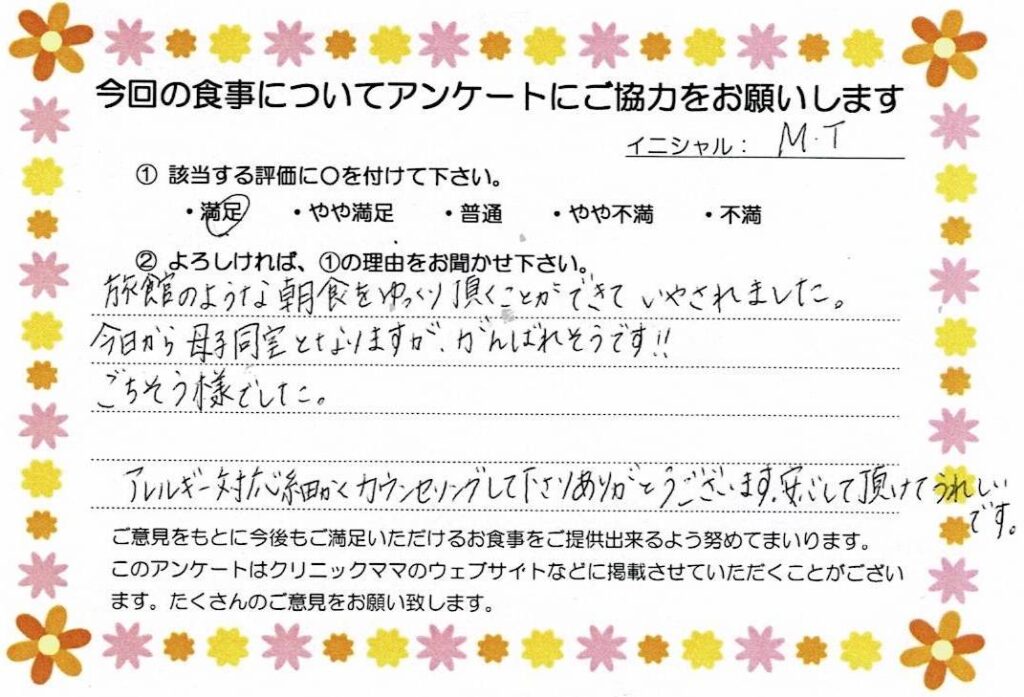 今回の食事についてアンケートにご協力をお願いします
イニシャル： M.T
① 該当する評価に○を付けて下さい。
・満足 ・やや満足 ・普通 ・やや不満 ・不満
② よろしければ、①の理由をお聞かせ下さい。
旅館のような朝食をゆっくり頂くことができていやされました。
今日から母子同室となりますが、がんばれそうです!!
ごちそう様でした。
アレルギー対応細かくカウンセリングして下さりありがとうございます。安心して頂けてうれしい
です。
ご意見をもとに今後もご満足いただけるお食事をご提供出来るよう努めてまいります。
このアンケートはクリニックママのウェブサイトなどに掲載させていただくことがござい
ます。たくさんのご意見をお願い致します。